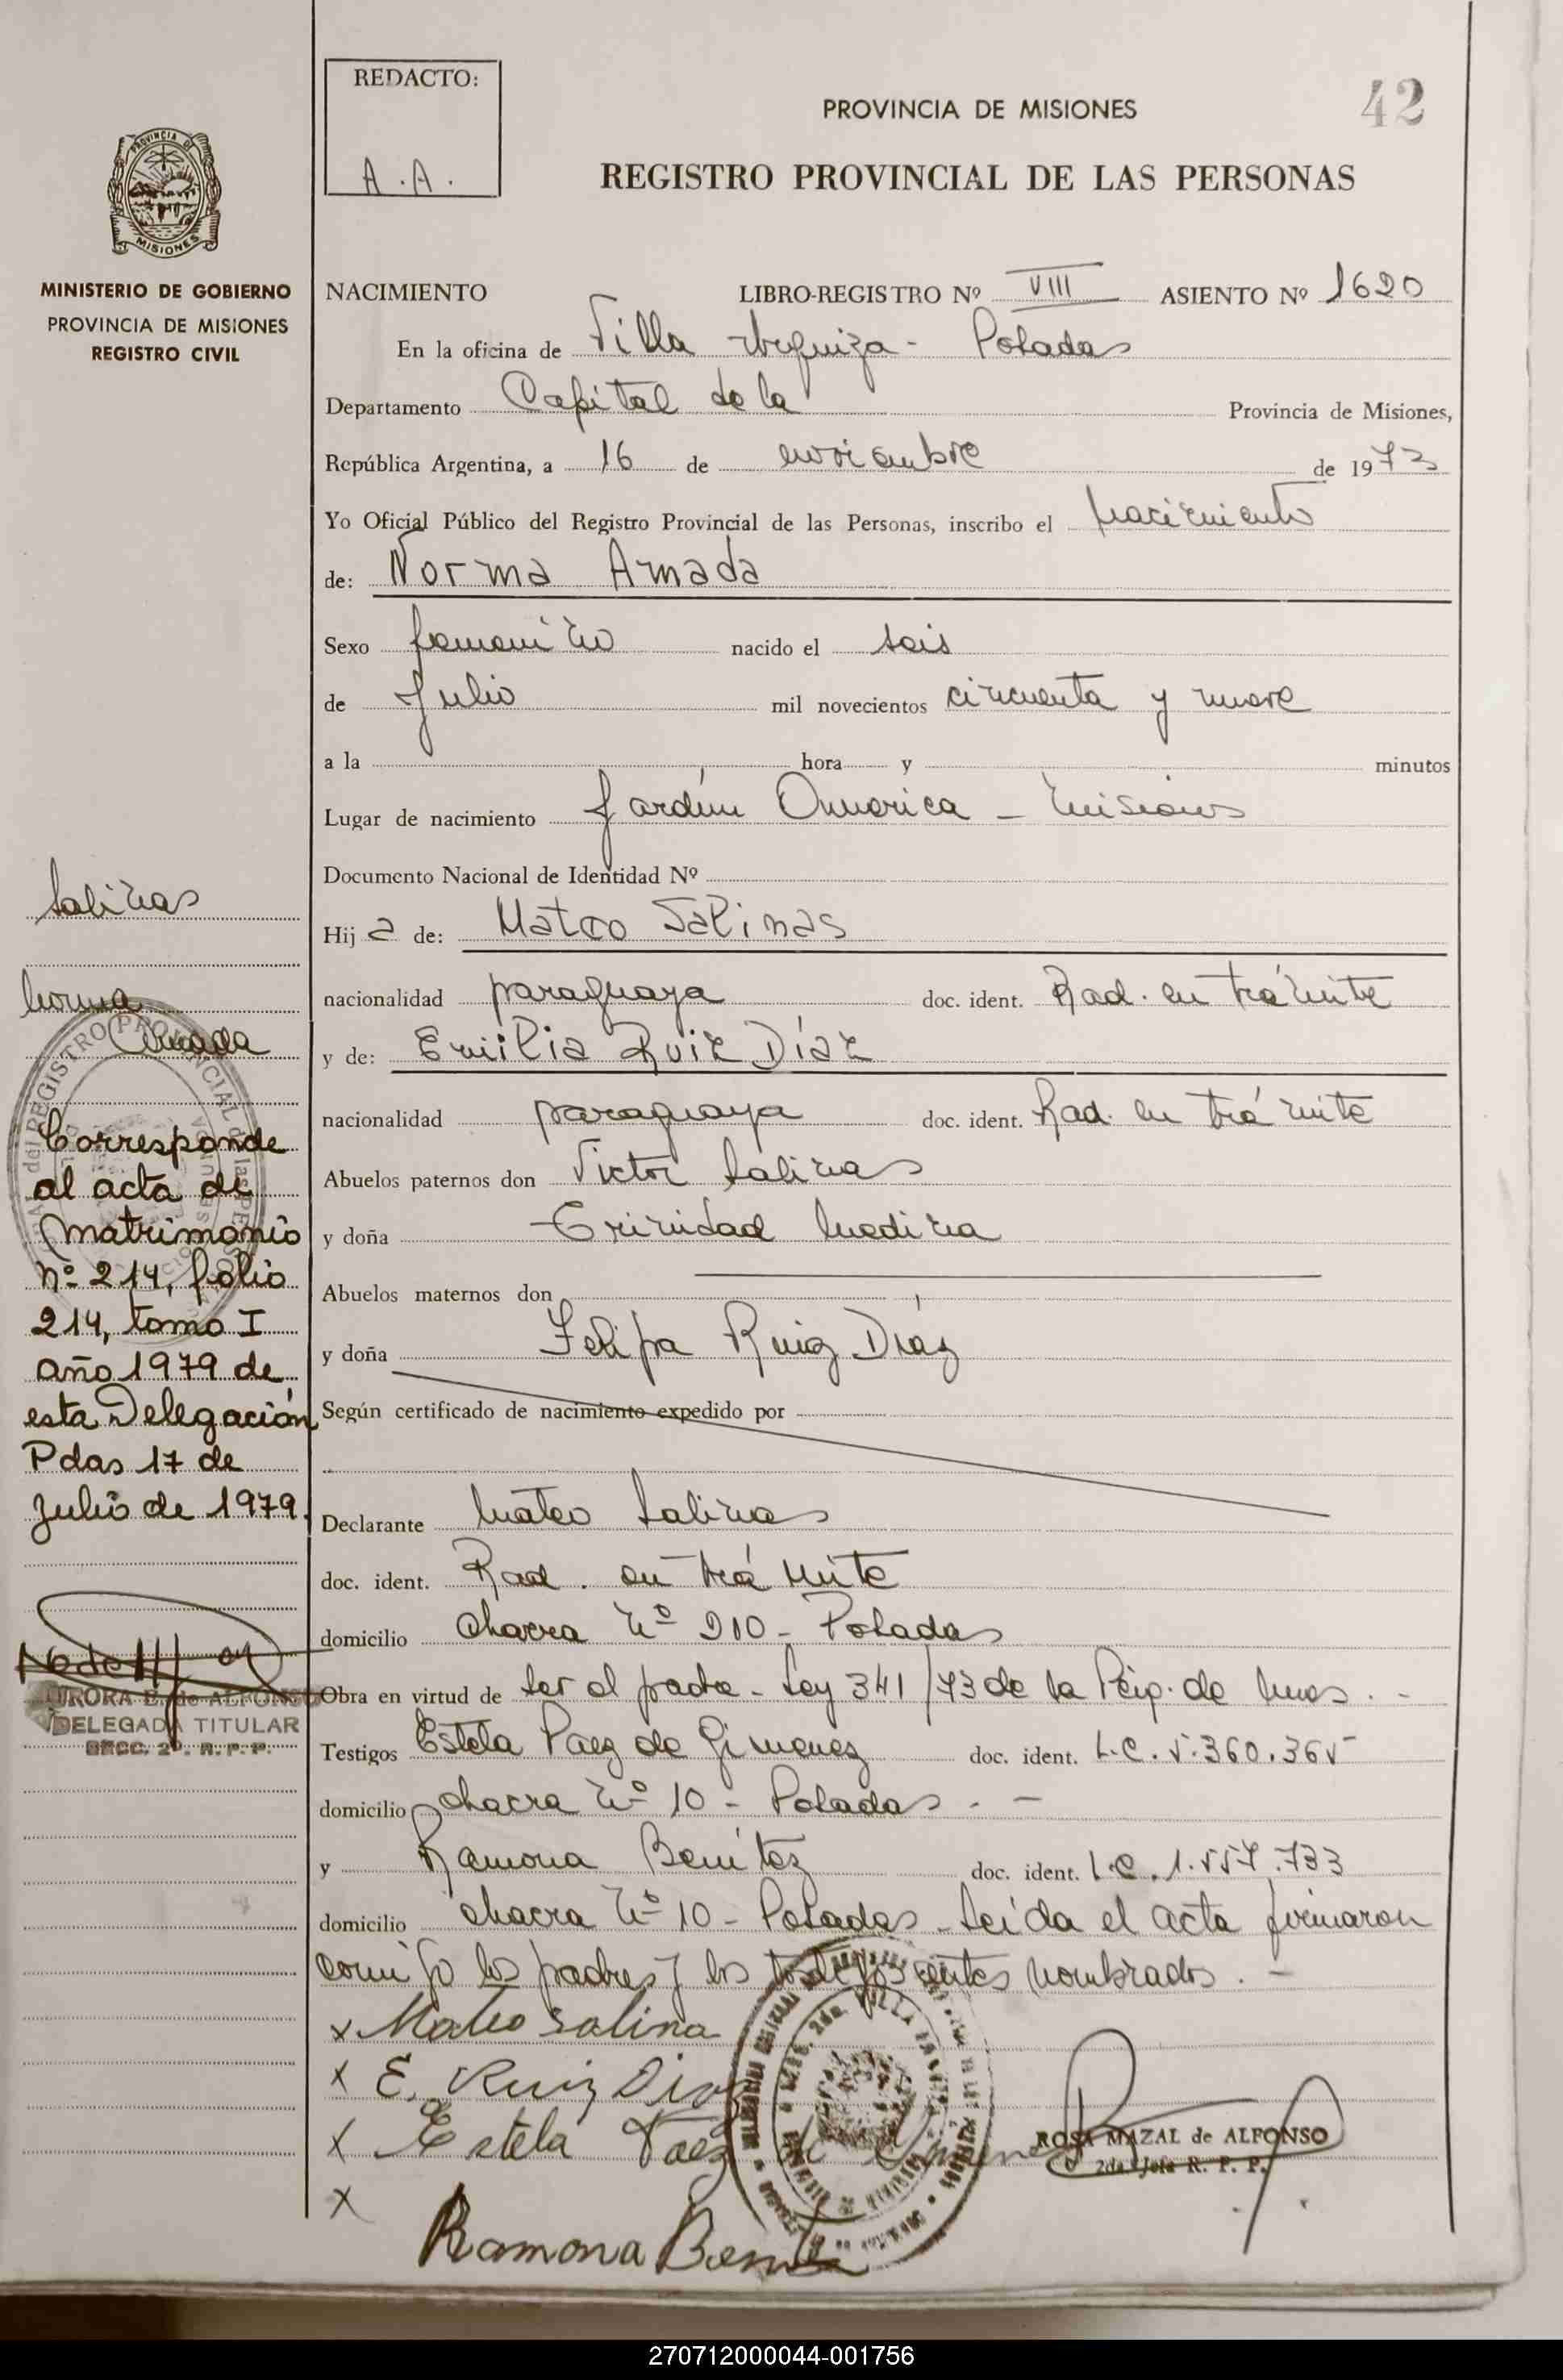 REDACTO:
A.A.
PROVINCIA DE MISIONES
42
REGISTRO PROVINCIAL DE LAS PERSONAS
PROVINCIA DE
MISIONES
MINISTERIO DE GOBIERNO
PROVINCIA DE MISIONES
REGISTRO CIVIL
NACIMIENTO LIBRO-REGISTRO Nº VIII ASIENTO Nº 1620
En la oficina de Villa Urquiza - Posadas
Departamento Capital de la Provincia de Misiones,
República Argentina, a 16 de noviembre de 1973
Yo Oficial Público del Registro Provincial de las Personas, inscribo el nacimiento
de: Norma Amada
Sexo femenino nacido el seis
de Julio mil novecientos cincuenta y nueve
a la hora y minutos
Lugar de nacimiento Jardín America - Misiones
Documento Nacional de Identidad Nº
Hij a de: Mateo Salinas
nacionalidad paraguaya doc. ident. Rad. en trámite
y de: Emilia Ruiz Díaz
nacionalidad paraguaya doc. ident. Rad. en trámite
Abuelos paternos don Victor Salinas
y doña Trinidad Medina
Abuelos maternos don
y doña Felipa Ruiz Díaz
Según certificado de nacimiento expedido por
Declarante Mateo Salinas
doc. ident. Rad. en trámite
domicilio chacra Nº 210 - Posadas
Obra en virtud de ser el padre - Ley 341/73 de la Reip. de Mnes. -
Testigos Estela Paez de Gimenez doc. ident. L.C. 5.360.365
domicilio chacra Nº 10 - Posadas. -
y Ramona Benítez doc. ident. L.C. 1.557.733
domicilio chacra Nº 10 - Posadas. Leída el acta firmaron
conmigo los padres y los nombrados. -
x Mateo Salina
x E. Ruiz Diaz
x Estela Paez de Gimenez
x
Ramona Benitez
ROSA MAZAL de ALFONSO
2da. Jefa R. P. P.
Salinas
Norma
Amada
Corresponde
al acta de
Matrimonio
nº 214, folio
214, tomo I
año 1979 de
esta Delegación
Pdas 17 de
Julio de 1979.
AURORA E. de ALFONSO
DELEGADA TITULAR
SECC. 2ª. R. P. P.
270712000044-001756